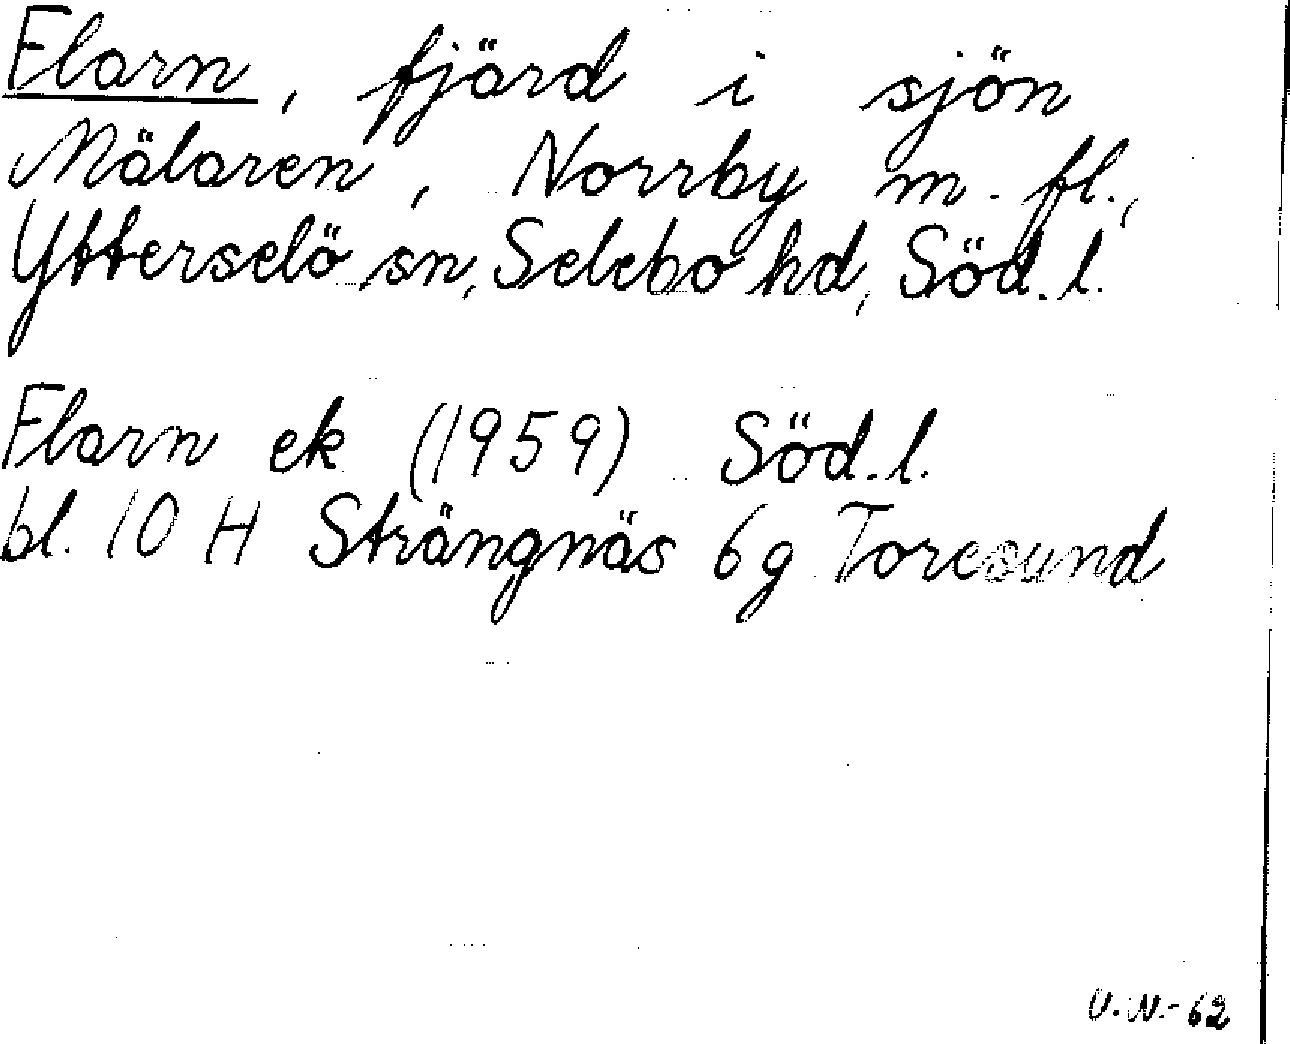 Flarn, fjärd i sjön
Mälaren, Norrby m. fl.,
Ytterselö sn, Selebo hd, Söd. l.
Flarn ek (1959) Söd. l.
bl. 10 H Strängnäs 6g Toresund
U.N.-62